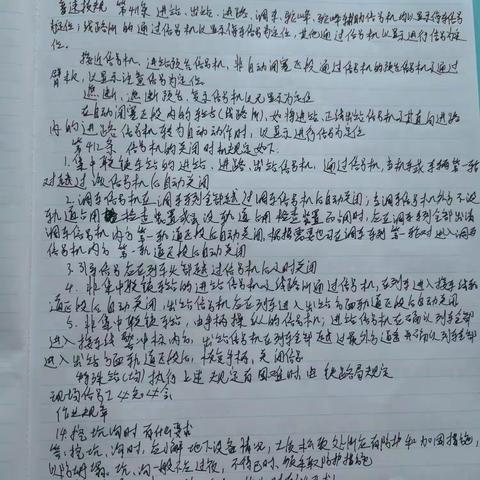 普速技规 第411条 进站、出站、进路、调车、驼峰、驼峰辅助信号机均以显示停车信号为
定位;线路所的通过信号机以显示停车信号为定位,其他通过信号机以显示进行信号为
定位。
接近信号机、进站预告信号机、非自动闭塞区段通过信号机的预告信号机及通过
臂板,以显示注意信号为定位
遮断、遮断预告、复示信号机以无显示为定位
在自动闭塞区段内的车站(线路所),如将进站、正线出站信号机及其直向进路
内的进路信号机转为自动动作时,以显示进行信号为定位
第412条 信号机的关闭时机规定如下
1.集中联锁车站的进站、进路、出站信号机,通过信号机,当机车或车辆第一轮
对越过该信号机后自动关闭
2.调车信号机在调车车列全部越过调车信号机后自动关闭;当调车信号机外方不设
轨道占用检查装置或虽设轨道占用检查装置而占用时,应在调车车列全部出清
调车信号机内方第一轨道区段后自动关闭,根据需要也可在调车车列第一轮对进入调车
信号机内方第一轨道区段后自动关闭
3.引导信号应在列车头部越过信号机后及时关闭
4.非集中联锁车站的进站信号机及线路所通过信号机,在列车进入接车线轨
道区段后自动关闭,出站信号机应在列车进入出站方面轨道区段后自动关闭
5.非集中联锁车站,由手柄操纵的信号机;进站信号机在确认列车全部
进入接车线警冲标内方,出站信号机在列车全部越过最外方道岔并确认列车全部
进入出站方面轨道区段后,恢复手柄,关闭信号
特殊站(场)执行上述规定有困难时,由铁路局规定
现场信号工 4知4会
作业规章
14.挖坑沟时有什么要求
答:挖坑、沟时,应了解地下设备情况,土质松软处所应有防护和加固措施,
以防坍塌。坑、沟一般不应过夜,不得已时,须采取防护措施